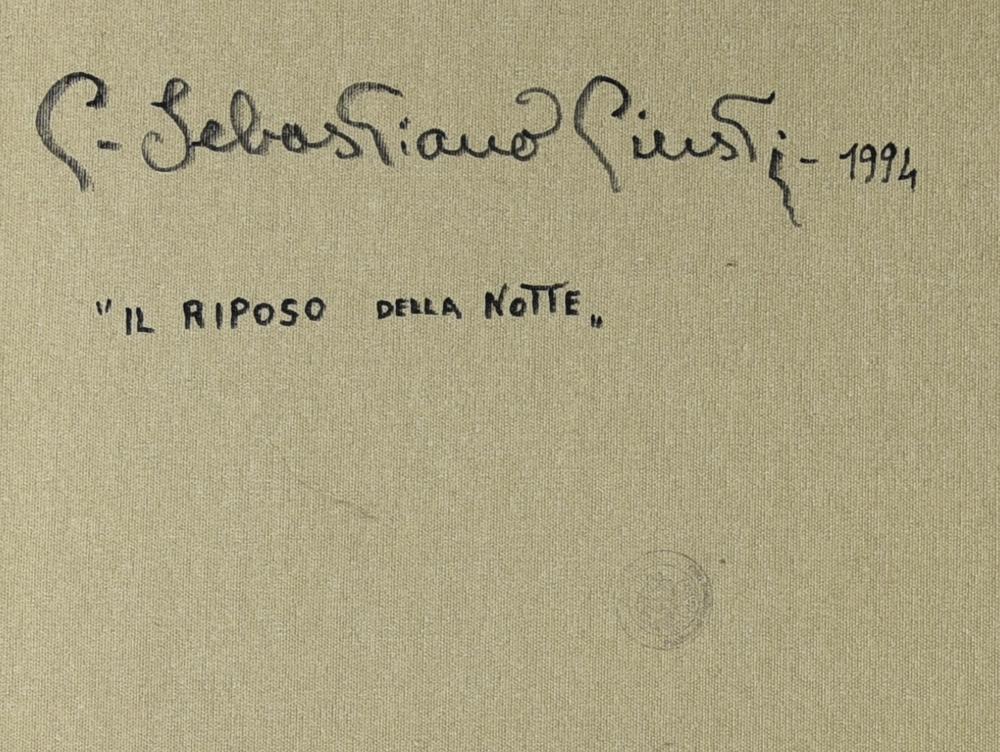 G. Sebastiano Giusti - 1994
"IL RIPOSO DELLA NOTTE„